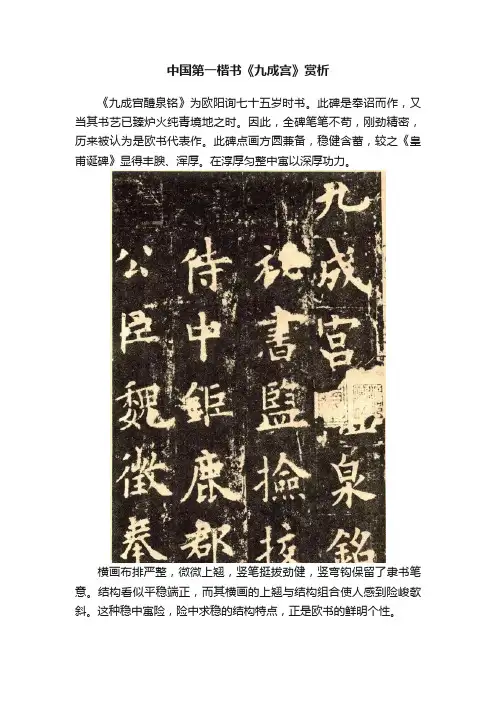 中国第一楷书《九成宫》赏析
《九成官醴泉铭》为欧阳询七十五岁时书。此碑是奉诏而作，又
当其书艺已臻炉火纯青境地之时。因此，全碑笔笔不苟，刚劲精密，
历来被认为是欧书代表作。此碑点画方圆兼备，稳健含蓄，较之《皇
甫诞碑》显得丰腴、浑厚。在淳厚匀整中寓以深厚功力。
九成宫泉銘
祕書監撿挍
侍中鉅鹿郡
公臣魏徵奉
横画布排严整，微微上翘，竖笔挺拔劲健，竖弯钩保留了隶书笔
意。结构看似平稳端正，而其横画的上翘与结构组合使人感到险峻欹
斜。这种稳中寓险，险中求稳的结构特点，正是欧书的鲜明个性。